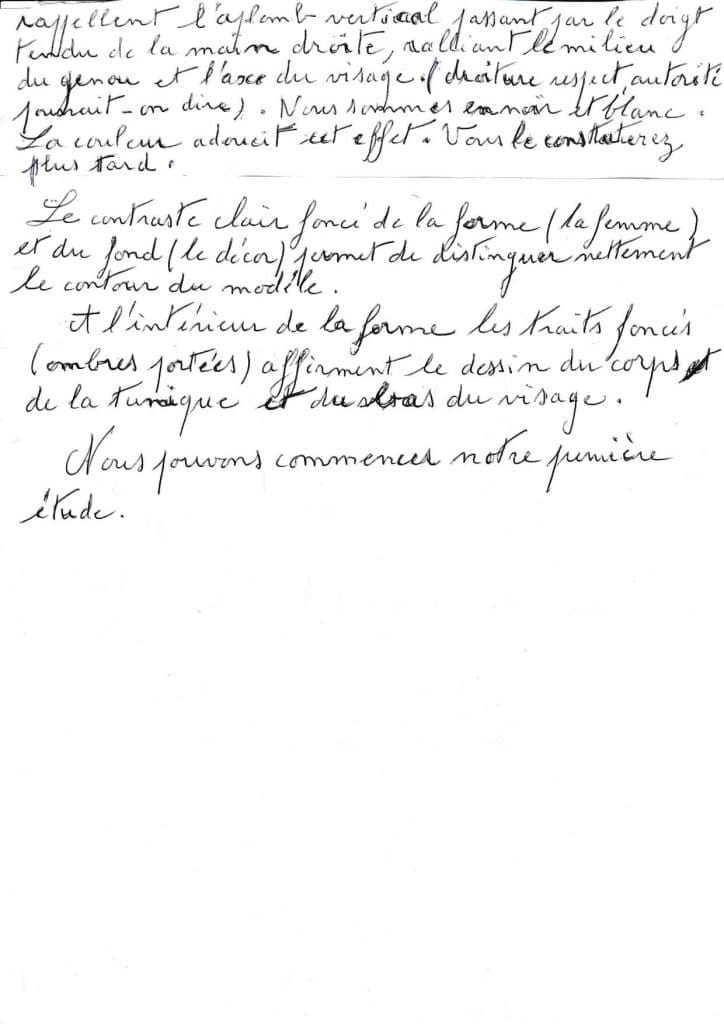 rappellent l'aplomb vertical passant par le doigt
tendu de la main droite, ralliant le milieu
du genou et l'axe du visage. (droiture respect, autorité
pourrait-on dire). Nous sommes en noir et blanc.
La couleur adoucit cet effet. Vous le constaterez
plus tard.
Le contraste clair foncé de la forme (la femme)
et du fond (le décor) permet de distinguer nettement
le contour du modèle.
A l'intérieur de la forme les traits foncés
(ombres portées) affirment le dessin du corps et
de la tunique et du bras du visage.
Nous pouvons commencer notre première
étude.